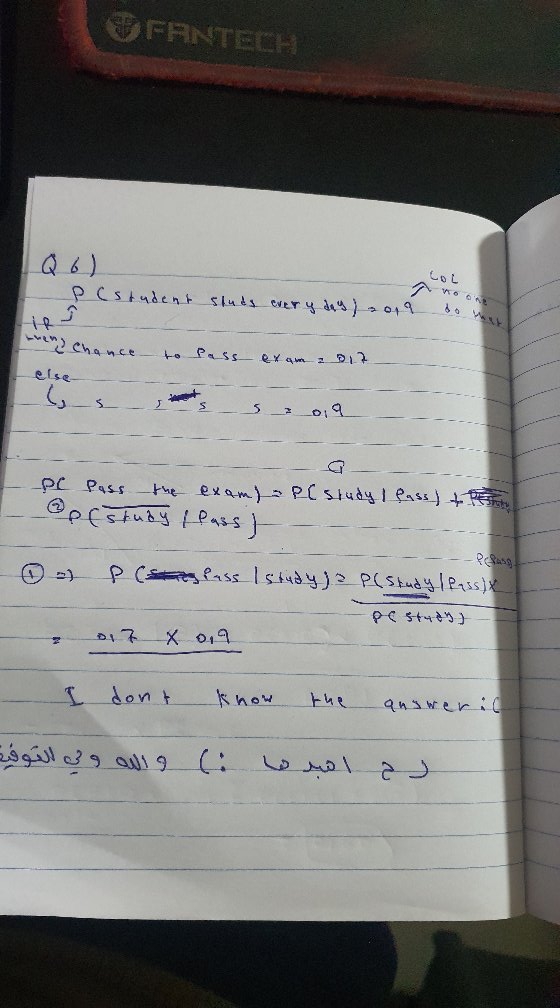 FANTECH
Q 6)
P(student studs every day) = 0,9
LOL
no one
do that
if
chance to pass exam = 0,7
else
s , s s = 0,9
P( Pass the exam) = P(study / Pass) +
② P(study / Pass)
① => P( Pass / study) = P(study / Pass) x
P(Pass)
P(study)
= 0,7 X 0,9
I dont know the answer :(
والله ولي التوفيق (: